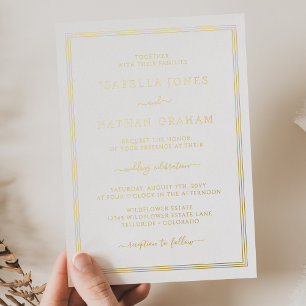 TOGETHER
WITH THEIR FAMILIES
ISABELLA JONES
and
NATHAN GRAHAM
REQUEST THE HONOR
OF YOUR PRESENCE AT THEIR
wedding celebration
SATURDAY, AUGUST 7TH, 20YY
AT FOUR O'CLOCK IN THE AFTERNOON
WILDFLOWER ESTATE
12345 WILDFLOWER ESTATE LANE
TELLURIDE - COLORADO
reception to follow